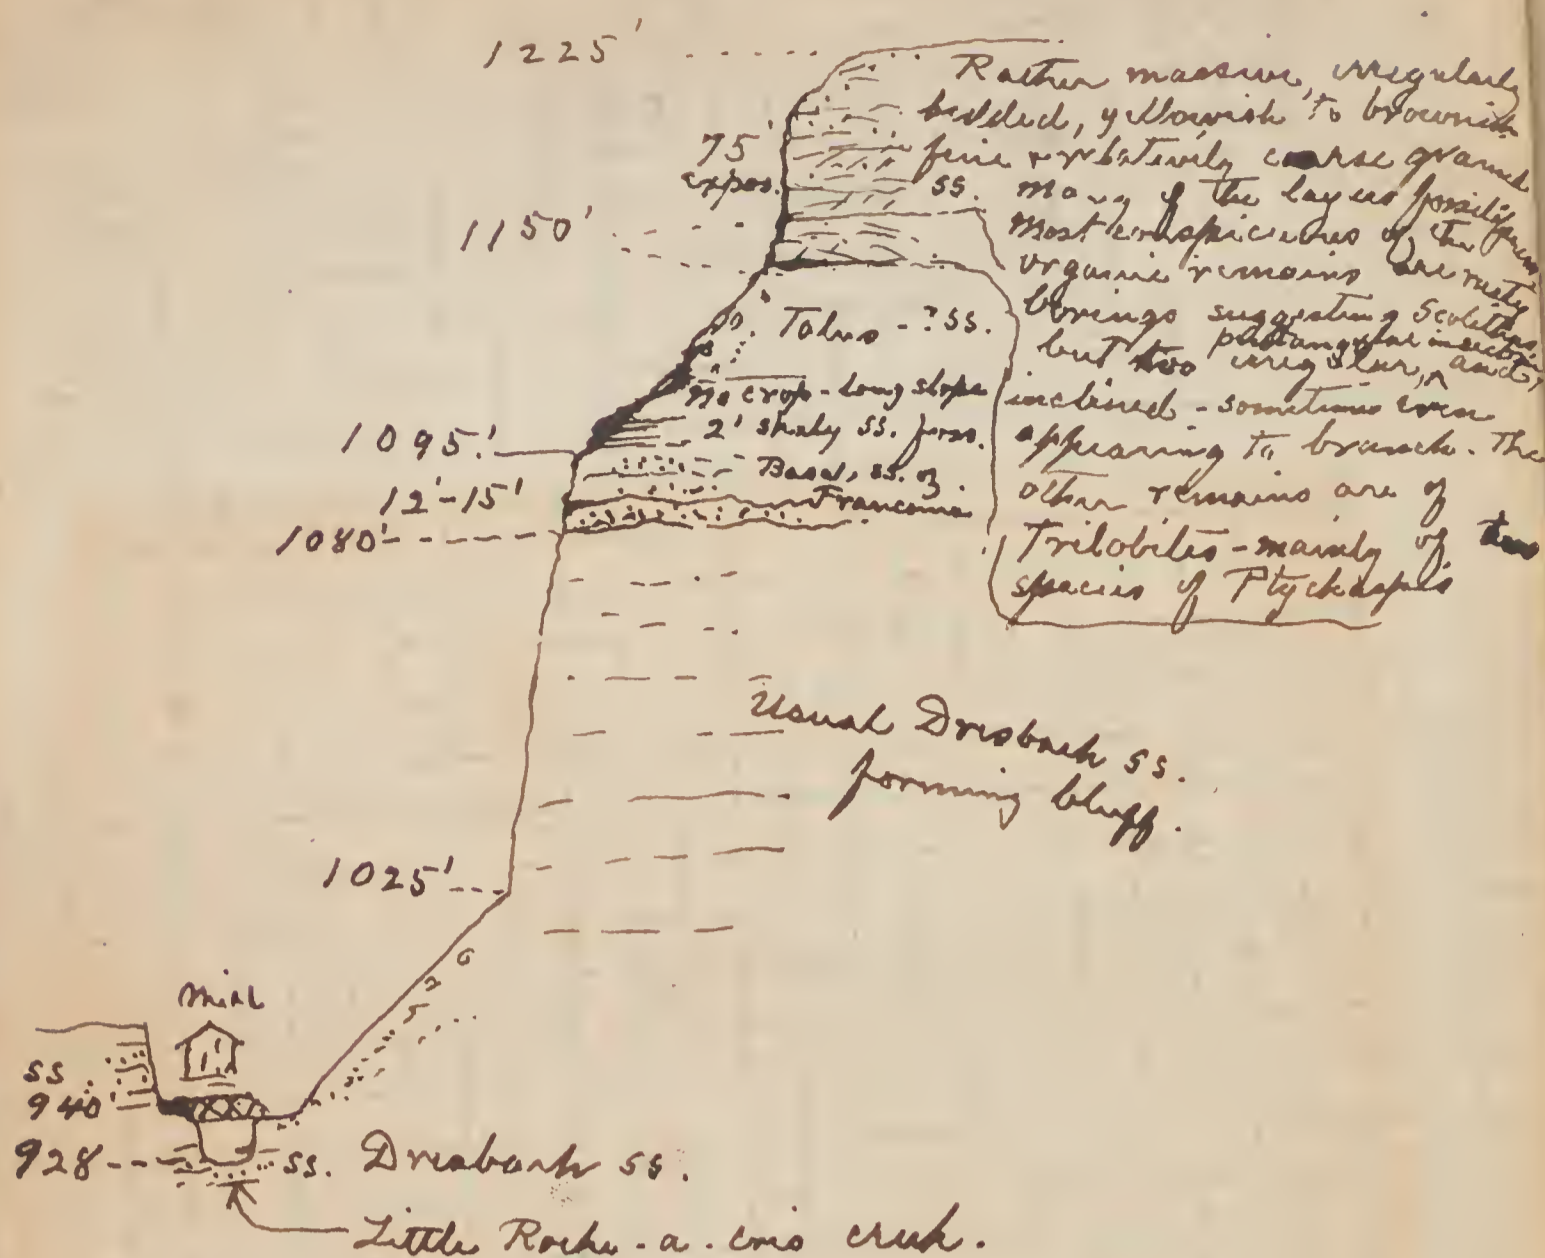 1225'
Rather massive, irregularly
bedded, yellowish to brownish
fine & relatively coarse grained
ss. Many of the layers fossiliferous
Most conspicuous of the
organic remains are rusty
borings suggesting Scolithus,
but too irregular, and
inclined - sometimes even
appearing to branch. The
other remains are of
Trilobites - mainly of two
species of Ptychaspis
75'
expos.
1150'
Talus - ? ss.
No crop - long slope
2' shaly ss. foss.
1095'
Basal ss. of
Franconia
12'-15'
1080'
Usual Dresbach ss.
forming bluff.
1025'
Mill
ss
940'
928
ss. Dresbach ss.
Little Roche-a-cris creek.